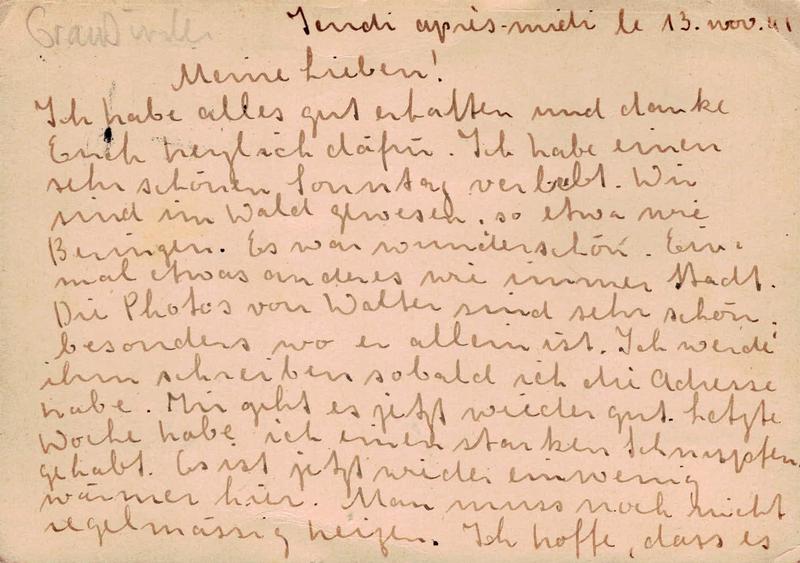 Jeudi après-midi le 13. nov. 41
Meine Lieben!
Ich habe alles gut erhalten und danke
Euch herzlich dafür. Ich habe einen
sehr schönen Sonntag verlebt. Wir
sind im Wald gewesen, so etwa wie
Beringen. Es war wunderschön. Ein-
mal etwas anderes wie immer Stadt.
Die Photos von Walter sind sehr schön,
besonders wo er allein ist. Ich werde
ihm schreiben sobald ich die Adresse
habe. Mir geht es jetzt wieder gut. Letzte
Woche habe ich einen starken Schnupfen
gehabt. Es ist jetzt wider einwenig
wärmer hier. Man muss noch nicht
regelmässig heizen. Ich hoffe, dass es